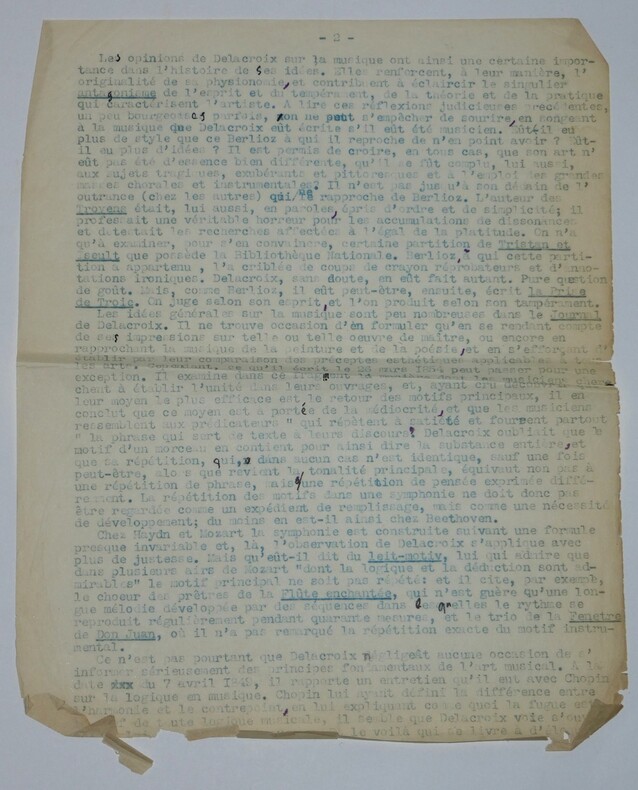 - 2 -
Les opinions de Delacroix sur la musique ont ainsi une certaine impor-
tance dans l'histoire de ses idées. Elles renforcent, à leur manière, l'
originalité de sa physionomie, et contribuent à éclaircir le singulier
antagonisme de l'esprit et du tempérament, de la théorie et de la pratique
qui caractérisent l'artiste. A lire ces réflexions judicieuses précédentes,
un peu bourgeoises parfois, on ne peut s'empêcher de sourire, en songeant
à la musique que Delacroix eût écrite s'il eût été musicien. Eût-il eu
plus de style que ce Berlioz à qui il reproche de n'en point avoir ? Eût-
il eu plus d'idées ? Il est permis de croire, en tous cas, que son art n'
eût pas été d'essence bien différente, qu'il se fût complu, lui aussi,
aux sujets tragiques, exubérants et pittoresques et à l'emploi des grandes
masses chorales et instrumentales? Il n'est pas jusqu'à son dédain de l'
outrance (chez les autres) qui ne le rapproche de Berlioz. L'auteur des
Troyens était, lui aussi, en paroles, épris d'ordre et de simplicité; il
professait une véritable horreur pour les accumulations de dissonances
et détestait les recherches affectées à l'égal de la platitude. On n'a
qu'à examiner, pour s'en convaincre, certaine partition de Tristan et
Iseult que possède la Bibliothèque Nationale. Berlioz, à qui cette parti-
tion a appartenu , l'a criblée de coups de crayon réprobateurs et d'anno-
tations ironiques. Delacroix, sans doute, en eût fait autant. Pure question
de goût. Mais, comme Berlioz, il eût peut-être, ensuite, écrit la Prise
de Troie. On juge selon son esprit, et l'on produit selon son tempérament.
Les idées générales sur la musique sont peu nombreuses dans le Journal
de Delacroix. Il ne trouve occasion d'en formuler qu'en se rendant compte
de ses impressions sur telle ou telle oeuvre de maître, ou encore en
rapprochant la musique de la peinture et de la poésie, et en s'efforçant d'
établir par leur comparaison des préceptes esthétiques applicables à t
les arts. Cependant, ce qu'il écrit le 28 mars 1854 peut passer pour une
exception. Il examine dans ce les musiciens cher-
chent à établir l'unité dans leurs ouvrages, et, ayant cru
leur moyen le plus efficace est le retour des motifs principaux, il en
conclut que ce moyen est à portée de la médiocrité, et que les musiciens
ressemblent aux prédicateurs " qui répètent à satiété et fourrent partout
" la phrase qui sert de texte à leurs discours? Delacroix oubliait que le
motif d'un morceau en contient pour ainsi dire la substance entière, et
que sa répétition, qui, dans aucun cas n'est identique, sauf une fois
peut-être, alors que revient la tonalité principale, équivaut non pas à
une répétition de phrase, mais à une répétition de pensée exprimée diffé-
remment. La répétition des motifs dans une symphonie ne doit donc pas
être regardée comme un expédient de remplissage, mais comme une nécessité
de développement; du moins en est-il ainsi chez Beethoven.
Chez Haydn et Mozart la symphonie est construite suivant une formule
presque invariable et, là, l'observation de Delacroix s'applique avec
plus de justesse. Mais qu'eût-il dit du leit-motiv, lui qui admire que
dans plusieurs airs de Mozart "dont la logique et la déduction sont ad-
mirables" le motif principal ne soit pas répété: et il cite, par exemple,
le choeur des prêtres de la Flûte enchantée, qui n'est guère qu'une lon-
gue mélodie développée par des séquences dans lesquelles le rythme se
reproduit régulièrement pendant quarante mesures, et le trio de la Fenêtre
de Don Juan, où il n'a pas remarqué la répétition exacte du motif instru-
mental.
Ce n'est pas pourtant que Delacroix négligeât aucune occasion de s'
informer sérieusement des principes fondamentaux de l'art musical. A la
date xxx du 7 avril 1849, il rapporte un entretien qu'il eut avec Chopin
sur la logique en musique. Chopin lui ayant défini la différence entre
l'harmonie et le contrepoint, en lui expliquant comme quoi la fugue est
de toute logique musicale, il semble que Delacroix
le voilà qui se livre à